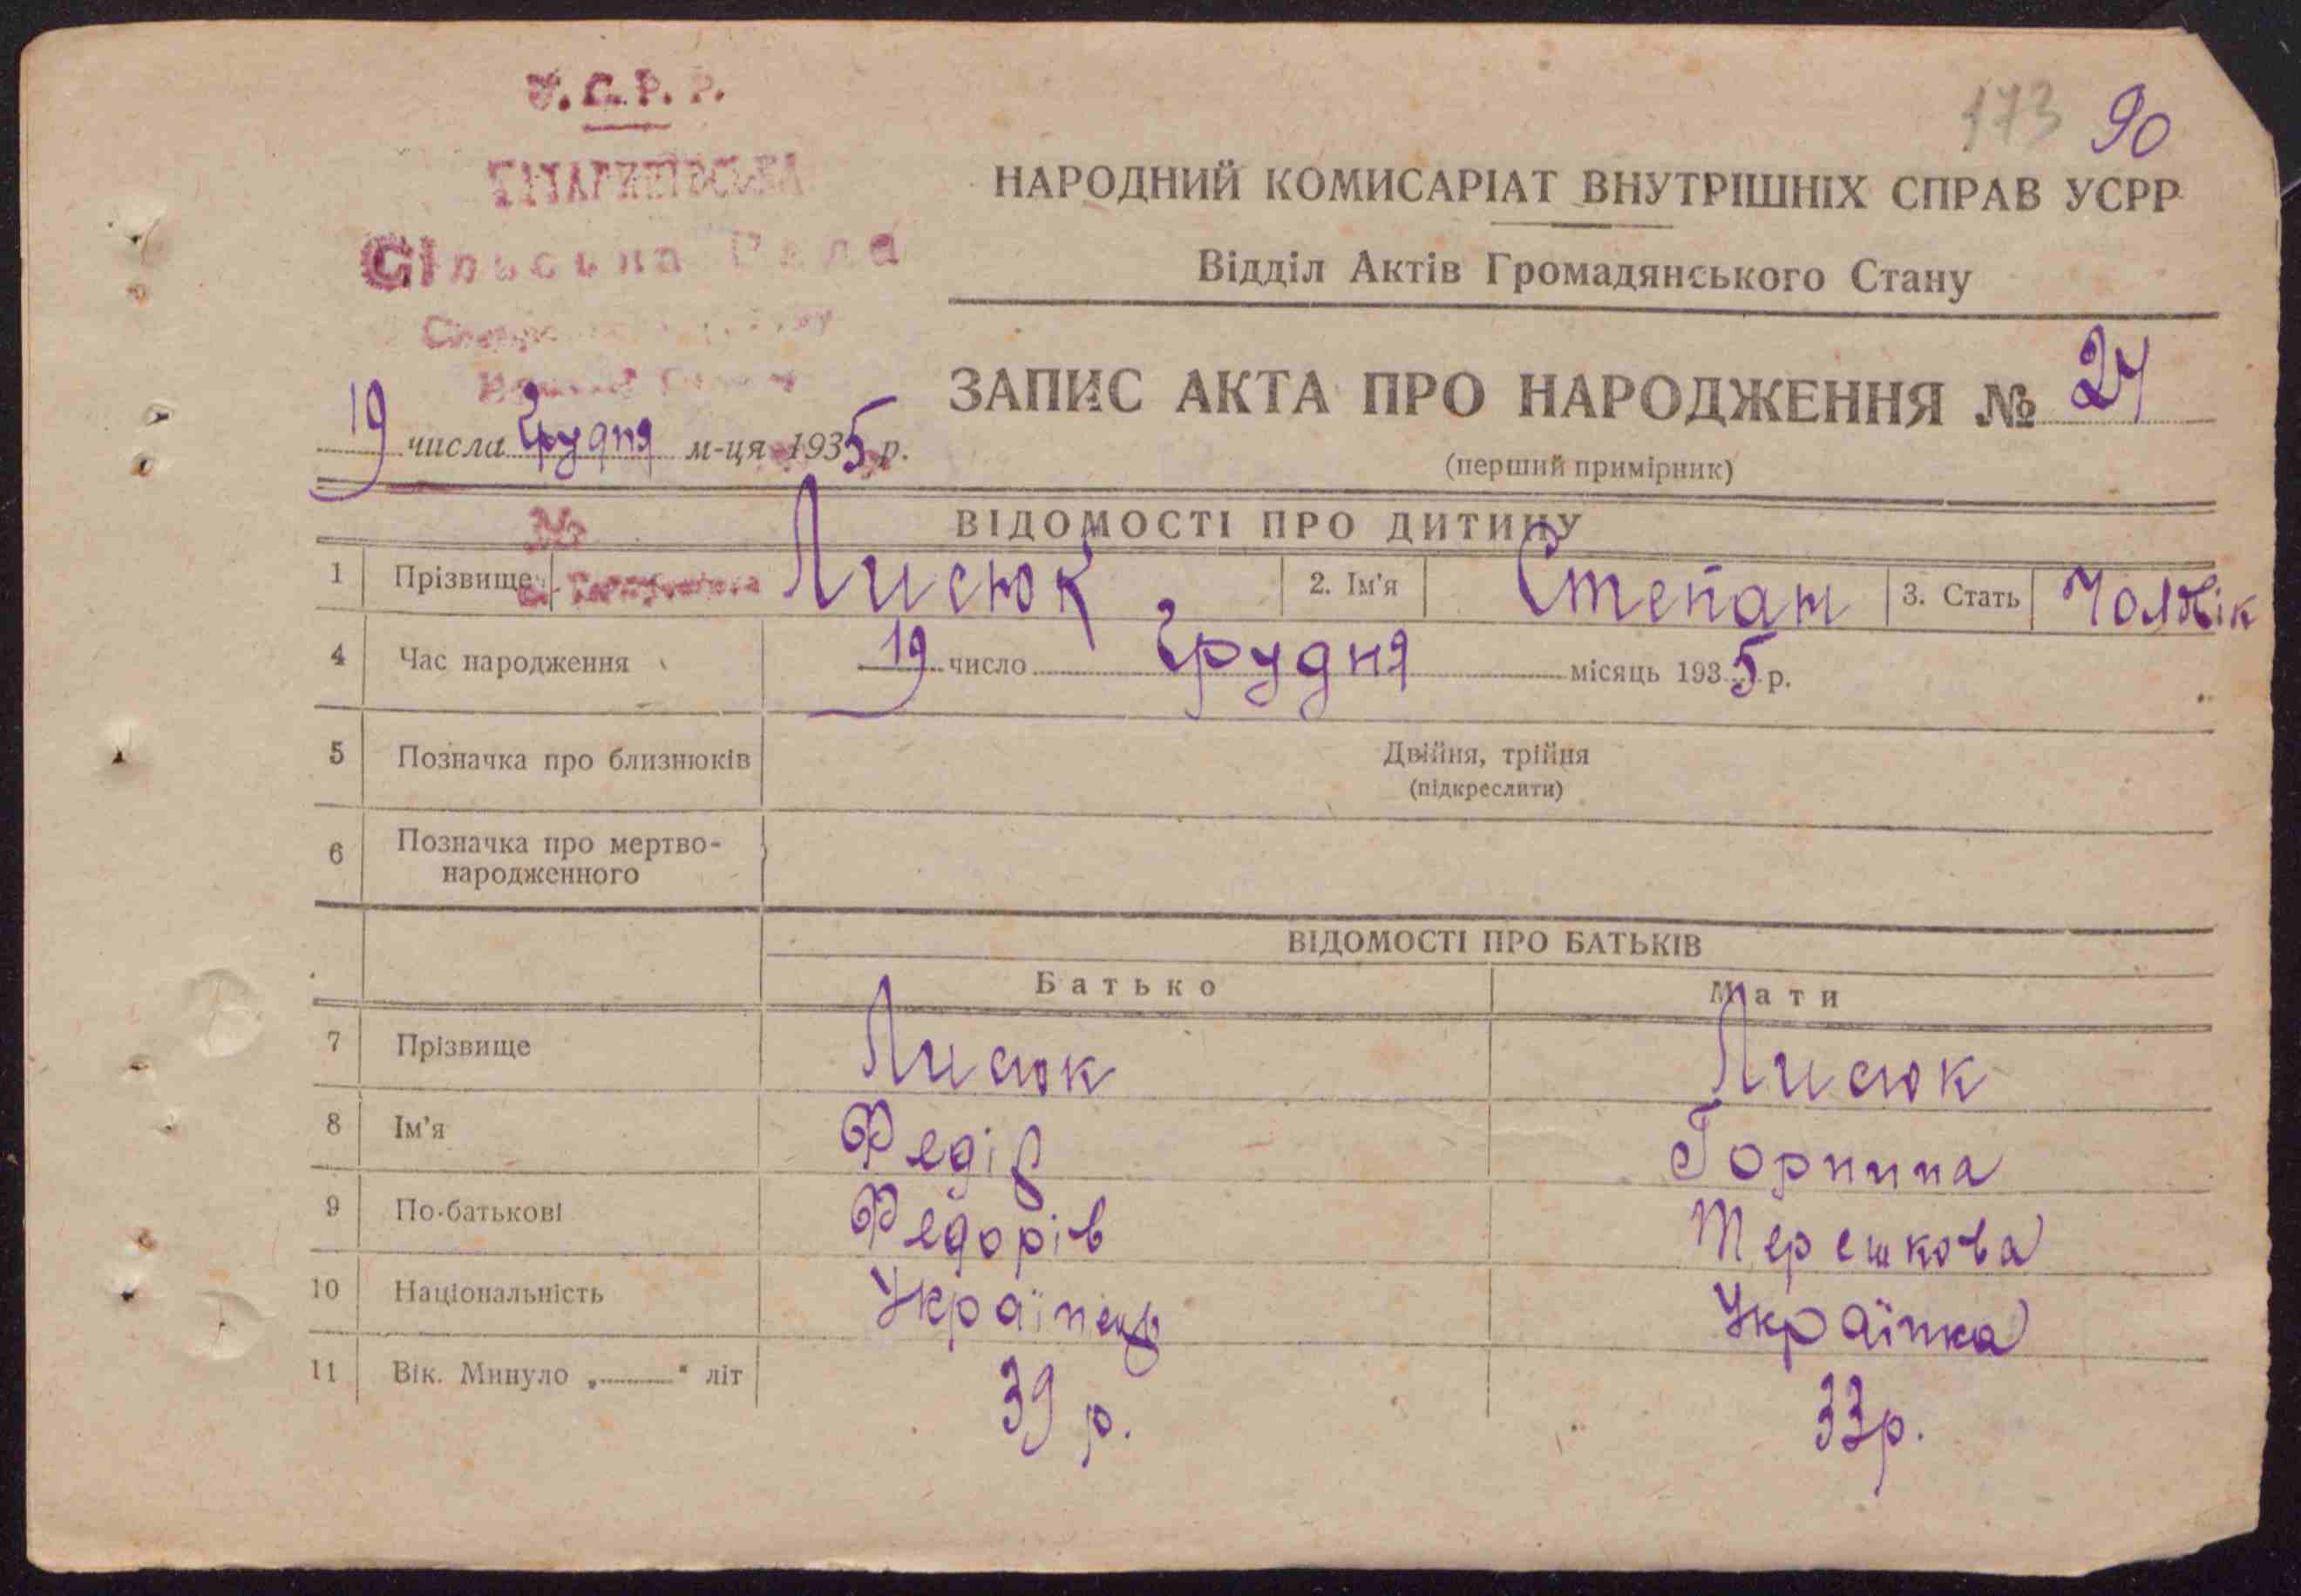 У.С.Р.Р.
173 90
НАРОДНИЙ КОМИСАРІАТ ВНУТРІШНІХ СПРАВ УСРР
Сільська Рада
Відділ Актів Громадянського Стану
ЗАПИС АКТА ПРО НАРОДЖЕННЯ № 24
19 числа Грудня м-ця 1935 р.
(перший примірник)
№
ВІДОМОСТІ ПРО ДИТИНУ
1 Прізвище Лисюк 2. Ім'я Степан 3. Стать Чоловік
4 Час народження 19 число Грудня місяць 1935 р.
5 Позначка про близнюків Двійня, трійня
(підкреслити)
6 Позначка про мертво-
народженного
ВІДОМОСТІ ПРО БАТЬКІВ
Батько Мати
7 Прізвище Лисюк Лисюк
8 Ім'я Федір Горпина
9 По-батькові Федорів Терешкова
10 Національність Українець Українка
11 Вік. Минуло „ “ літ 39 р. 33 р.